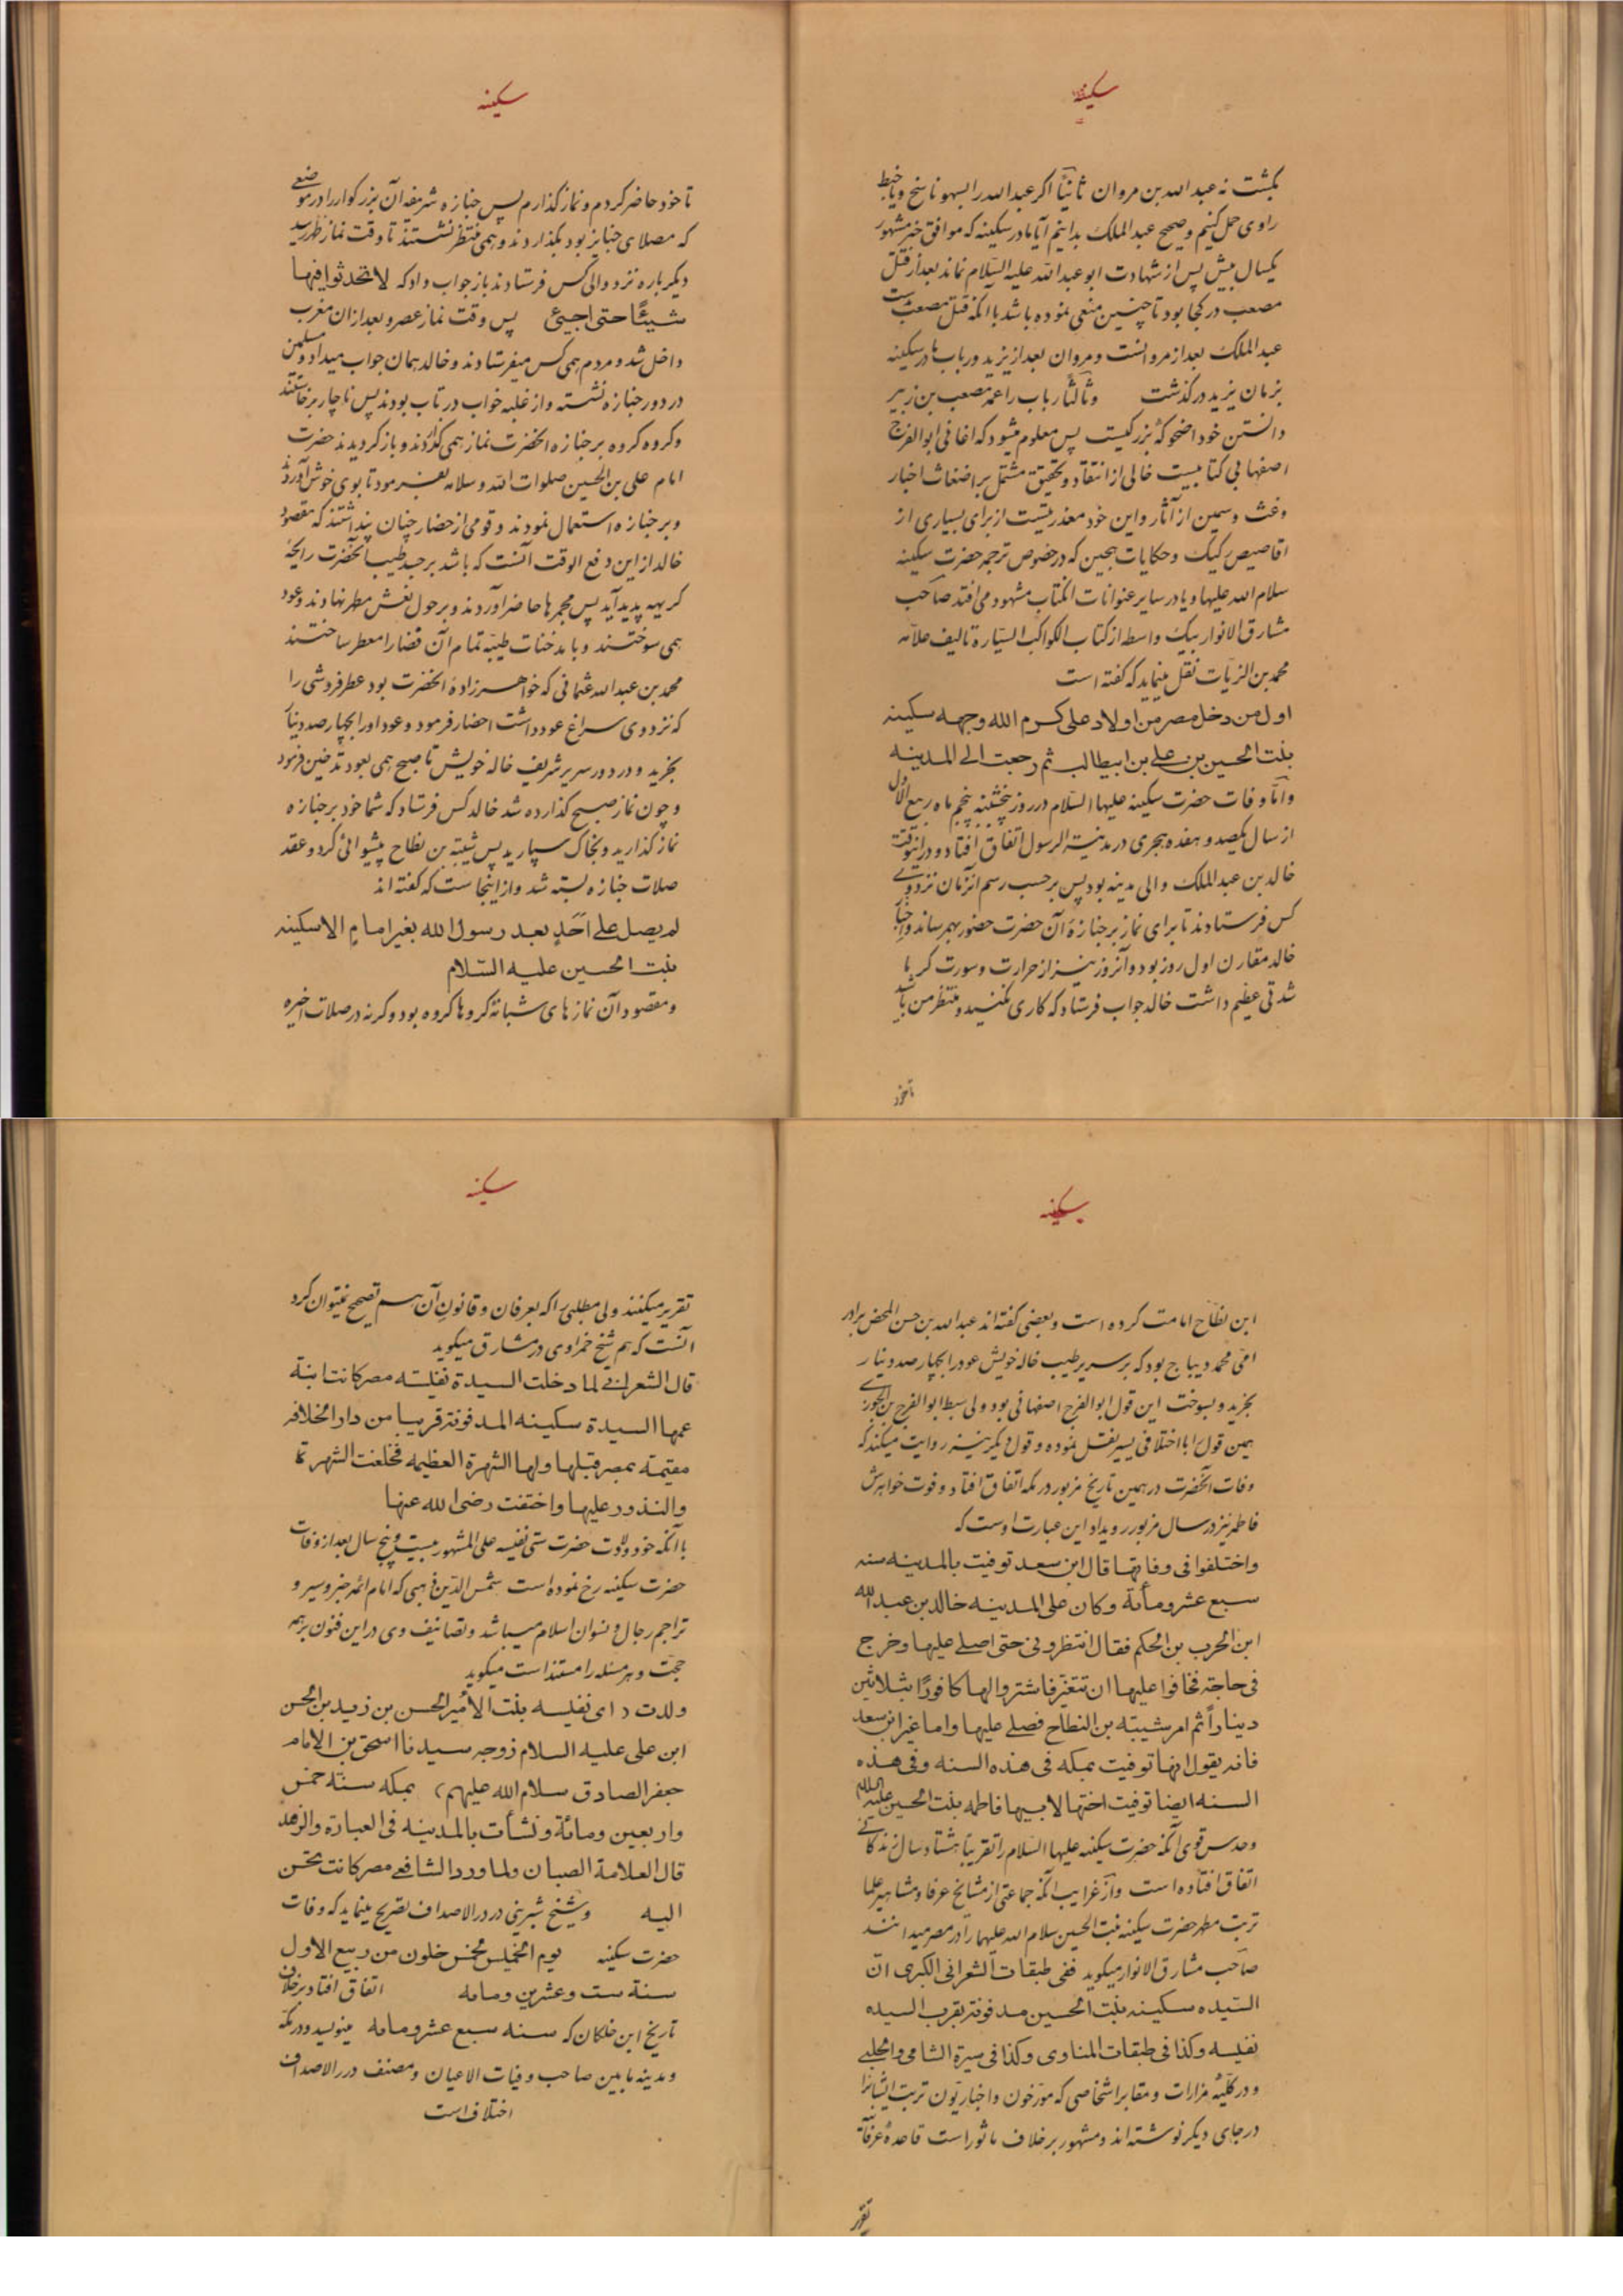 سکینه
بکشت نه عبدالله بن مروان ثانیاً اکر عبدالله را بسهو ناسخ و یا خبط
راوی حمل کنیم و صحیح عبدالملک بدانیم آیا مادر سکینه که موافق خبر مشهور
یکسال بیش پس از شهادت ابو عبدالله علیه السّلام نماند بعد از قتل
مصعب در کجا بود تا چنین منعی نموده باشد با آنکه قتل مصعب بدست
عبدالملک بعد از مروانست و مروان بعد از یزید و رباب مادر سکینه
بزمان یزید درکذشت وثالثاً رباب را عمه مصعب بن زبیر
دانستن خود اضحوکه بزرکیست پس معلوم میشود که اغانی ابوالفرج
اصفهانی کتابیست خالی از انتقاد و تحقیق مشتمل بر اضغاث اخبار
وغث و سمین از آثار و این خود معذرتیست از برای بسیاری از
اقاصیص رکیک و حکایات هجین که در خصوص ترجمه حضرت سکینه
سلام الله علیها و یا در سایر عنوانات انکتاب مشهود می افتد صاحب
مشارق الانوار بیک واسطه از کتاب الکواکب السیّارة تالیف علامه
محمد بن الزیات نقل مینماید که کفته است
اول من دخل مصر من اولاد علی کرم الله وجهه سکینه
بنت الحسین بن علی بن ابیطالب ثم رجعت الی المدینه
وامّا وفات حضرت سکینه علیها السّلام در روز پنجشنبه پنجم ماه ربیع الاول
از سال یکصد و هفده هجری در مدینة الرسول اتفاق افتاد و در انوقت
خالد بن عبدالملک والی مدینه بود پس بر حسب رسم انزمان نزد وی
کس فرستادند تا برای نماز بر جنازهٔ آن حضرت حضور بهمرساند و اخبار
خالد مقارن اول روز بود و آنروز نیز از حرارت و سورت کرما
شدتی عظیم داشت خالد جواب فرستاد که کاری نکنید و منتظر من باشید
تا خود
سکینه
تا خود حاضر کردم و نماز کذارم پس جنازه شریفه آن بزرکوار را در موضعی
که مصلای جنایز بود بکذاردند و همی منتظر نشستند تا وقت نماز ظهر رسید
دیکر باره نزد والی کس فرستادند باز جواب داد که لا تحدثوا فیها
شیئًا حتی اجیئ پس وقت نماز عصر و بعد از ان مغرب
داخل شد و مردم همی کس میفرستادند و خالد همان جواب میداد و مسلمین
در دور جنازه نشسته و از غلبه خواب در تاب بودند پس ناچار برخاستند
و کروه کروه بر جنازه انحضرت نماز همی کذاردند و باز کردیدند حضرت
امام علی بن الحسین صلوات الله وسلامه بفرمود تا بوی خوش آوردند
و بر جنازه استعمال نمودند و قومی از حضار چنان پنداشتند که مقصود
خالد از این دفع الوقت آنست که باشد بر جسد طیب آنحضرت رایحهٔ
کریهه پدید آید پس مجمرها حاضر آوردند و بر حول نعش مطهر نهادند و عود
همی سوختند و با دخنات طیبه تمام آن فضا را معطر ساختند
محمد بن عبدالله عثمانی که خواهرزادهٔ انحضرت بود عطر فروشی را
که نزد وی سراغ عود داشت احضار فرمود و عود او را بچهار صد دینار
بخرید و در دور سریر شریف خاله خویش تا صبح همی بعود تدخین فرمود
و چون نماز صبح کذارده شد خالد کس فرستاد که شما خود بر جنازه
نماز کذارید و بخاک سپارید پس شیبة بن نطاح پیشوائی کرد و عقد
صلات جنازه بسته شد و از اینجا است که کفته اند
لم یصل علی احدٍ بعد رسول الله بغیر امامٍ الا سکینه
بنت الحسین علیه السّلام
و مقصود آن نمازهای شبانهٔ کروها کروه بود و کرنه در صلات اخیره
سکینه
ابن نطّاح امامت کرده است و بعضی کفته اند عبدالله بن حسن المحض برادر
امّی محمد دیباج بود که بر سریر طیب خاله خویش عود را بچهار صد دینار
بخرید و بسوخت این قول ابوالفرج اصفهانی بود ولی سبط ابوالفرج بن الجوزی
همین قول را با اختلافی یسیر نقل نموده و قول دیکر نیز روایت میکند که
وفات آنحضرت در همین تاریخ مزبور در مکه اتفاق افتاد و فوت خواهرش
فاطمه نیز در سال مزبور رویداد این عبارت اوست که
واختلفوا فی وفاتها قال ابن سعد توفیت بالمدینه سنه
سبع عشر ومأة وکان علی المدینه خالد بن عبدالله
ابن الحرب بن الحکم فقال انتظرونی حتی اصلی علیها وخرج
فی حاجته فخافوا علیها ان تتغیر فاشتروا لها کافورًا بثلاثین
دیناراً ثم امر شیبته بن النطاح فصلی علیها واما غیر ابن سعد
فانه یقول انها توفیت بمکه فی هذه السنه وفی هذه
السنه ایضا توفیت اختها لابیها فاطمه بنت الحسین علیه السلام
وحدس قوی آنکه حضرت سکینه علیها السّلام را تقریباً هشتاد سال زندکانی
اتفاق افتاده است وازغرایب آنکه جماعتی از مشایخ عرفا و مشاهیر علما
تربت مطهر حضرت سکینه بنت الحسین سلام الله علیهما را در مصر میدانند
صاحب مشارق الانوار میکوید ففی طبقات الشعرانی الکبری ان
السّیده سکینه بنت الحسین مدفونة بقرب السیده
نفیسه وکذا فی طبقات المناوی وکذا فی سیرة الشامی والحلبی
و در کلیّهٔ مزارات و مقابر اشخاصی که مورّخون و اخباریّون تربت ایشانرا
در جای دیکر نوشته اند و مشهور بر خلاف ماثور است قاعدهٔ عرفانیّه
تقریر
سکینه
تقریر میکنند ولی مطلبی را که بعرفان و قانون آن هم تصحیح نمیتوان کرد
آنست که هم شیخ حمزاوی در مشارق میکوید
قال الشعرانی لما دخلت السیدة نفیسته مصر کانت ابنة
عمها السیدة سکینه المدفونة قریبا من دار الخلافه
مقیمته بمصر قبلها ولها الشهرة العظیمه فخلعت الشهرة
والنذور علیها واختفت رضی الله عنها
با آنکه خود ولادت حضرت ستی نفیسه علی المشهور بیست و پنج سال بعد از وفات
حضرت سکینه رخ نموده است شمس الدین ذهبی که امام ائمه خبر و سیر و
تراجم رجال و نسوان اسلام میباشد و تصانیف وی در این فنون بر همه
حجّت و هر مسئله را مستند است میکوید
ولدت ( ای نفیسه بنت الامیر الحسن بن زید بن الحسن
ابن علی علیه السلام زوجه سیدنا اسحق بن الامام
جعفر الصادق سلام الله علیهم) بمکه سنته خمس
واربعین ومائة ونشأت بالمدینه فی العبادة والزهد
قال العلامة الصبان ولما ورد الشافعی مصر کانت تحسن
الیه وشیخ شربینی در درر الاصداف تصریح مینماید که وفات
حضرت سکینه یوم الخمیس لخمس خلون من ربیع الاول
سنة ست وعشرین ومایه اتفاق افتاد بر خلاف
تاریخ ابن خلکان که سنه سبع عشر ومایه مینویسد و در مکه
و مدینه ما بین صاحب وفیات الاعیان و مصنف درر الاصداف
اختلاف است